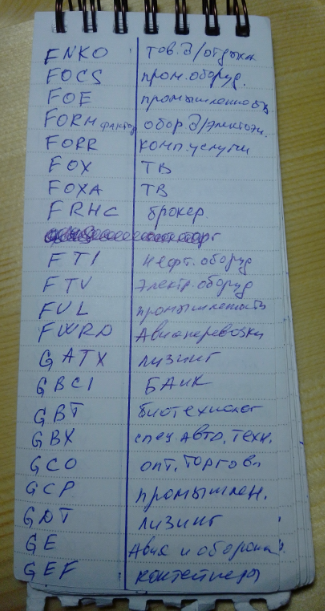 FNKO тов. д/отдыха
FOCS пром. оборуд.
FOE промышленность
FORM фактор обор. д/электрон.
FORR комп. услуги
FOX ТВ
FOXA ТВ
FRHC брокер
FTI нефт. оборуд
FTV электр. оборуд
FUL промышленность
FWRD Авиаперевозки
GATX лизинг
GBCI БАНК
GBT биотехнолог
GBX спец Авто. техн.
GCO опт. торговл
GCP промышлен.
GDT лизинг
GE Авиа и оборона
GEF контейнеры